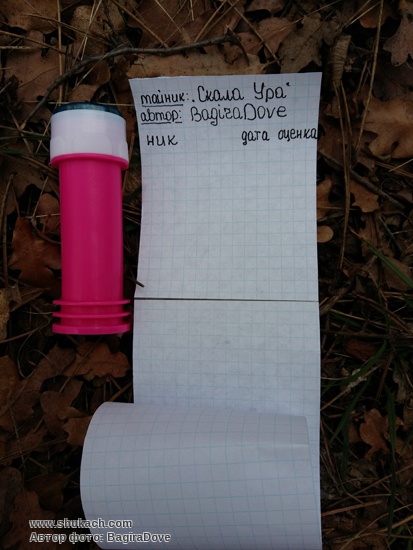 тайник: "Скала Ура"
автор: BagiraDove
ник дата оценка
www.shukach.com
Автор фото: BagiraDove